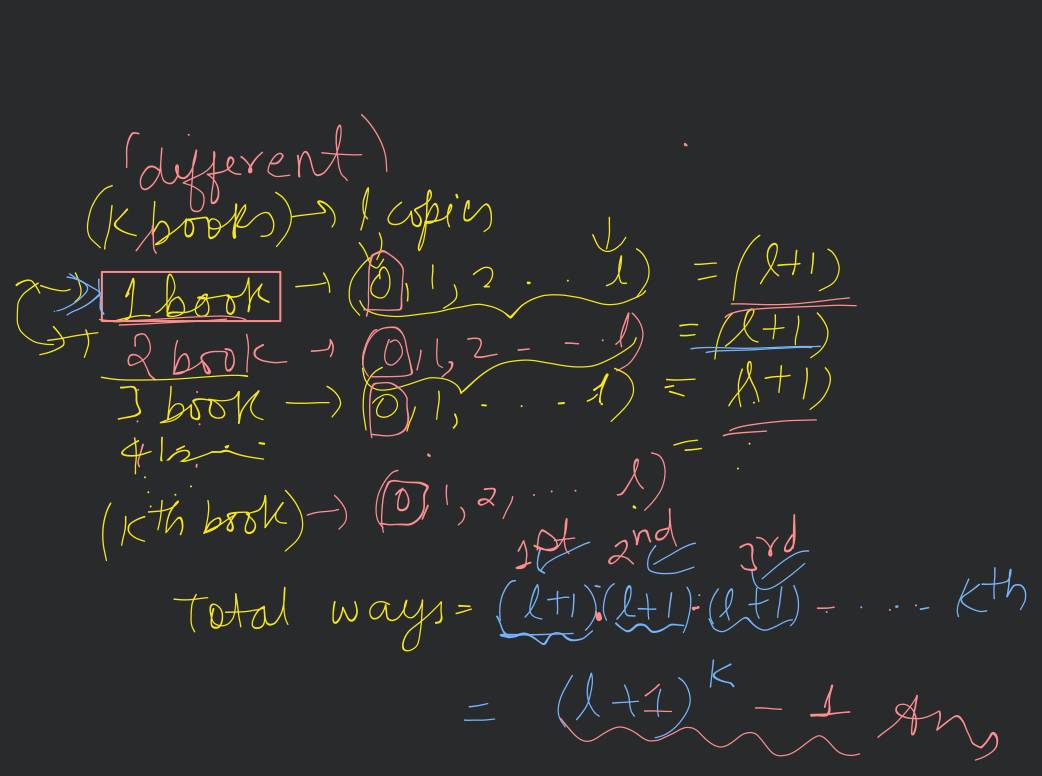 (different)
(K books) → l copies
1 book → (0, 1, 2 . . l) = (l+1)
2 book → (0, 1, 2 - - l) = (l+1)
3 book → (0, 1, - . . - l) = (l+1)
=
(Kth book) → (0, 1, 2, ... l)
1st 2nd 3rd
Total ways = (l+1).(l+1).(l+1) - . ... - Kth
= (l+1)^K - 1 Ans